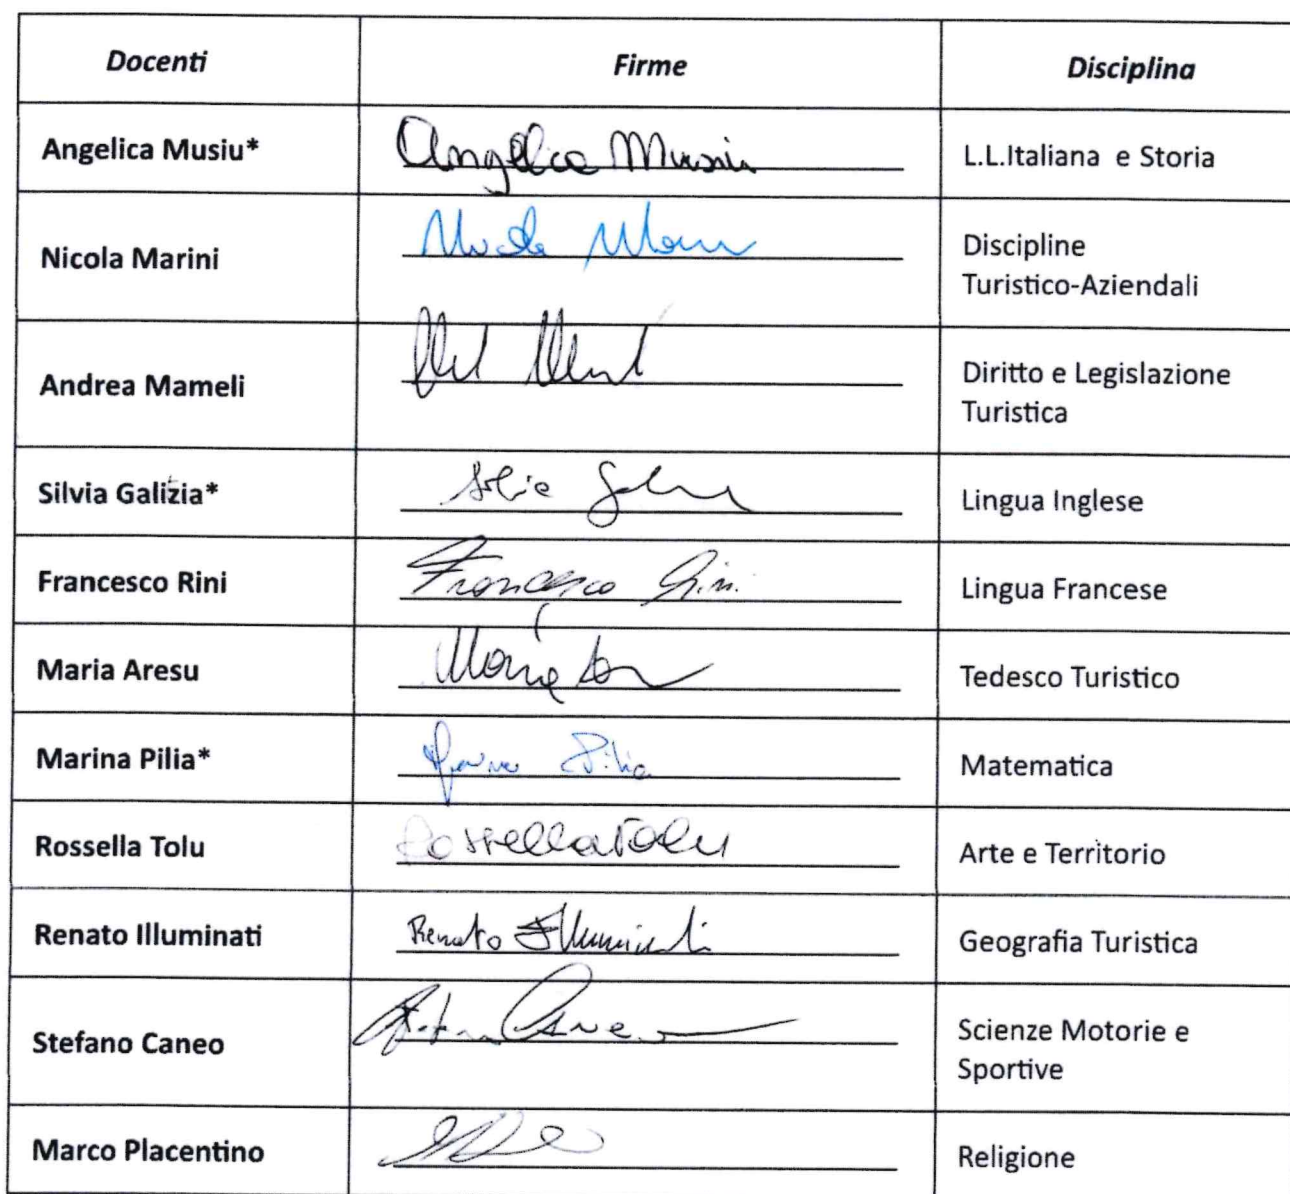 Docenti Firme Disciplina
Angelica Musiu* Angelica Musiu L.L.Italiana e Storia
Nicola Marini Discipline
Turistico-Aziendali
Andrea Mameli Diritto e Legislazione
Turistica
Silvia Galizia* Lingua Inglese
Francesco Rini Francesco Rini Lingua Francese
Maria Aresu Maria Tedesco Turistico
Marina Pilia* Pilia Matematica
Rossella Tolu Rossella Tolu Arte e Territorio
Renato Illuminati Renato Illuminati Geografia Turistica
Stefano Caneo Scienze Motorie e
Sportive
Marco Placentino Religione